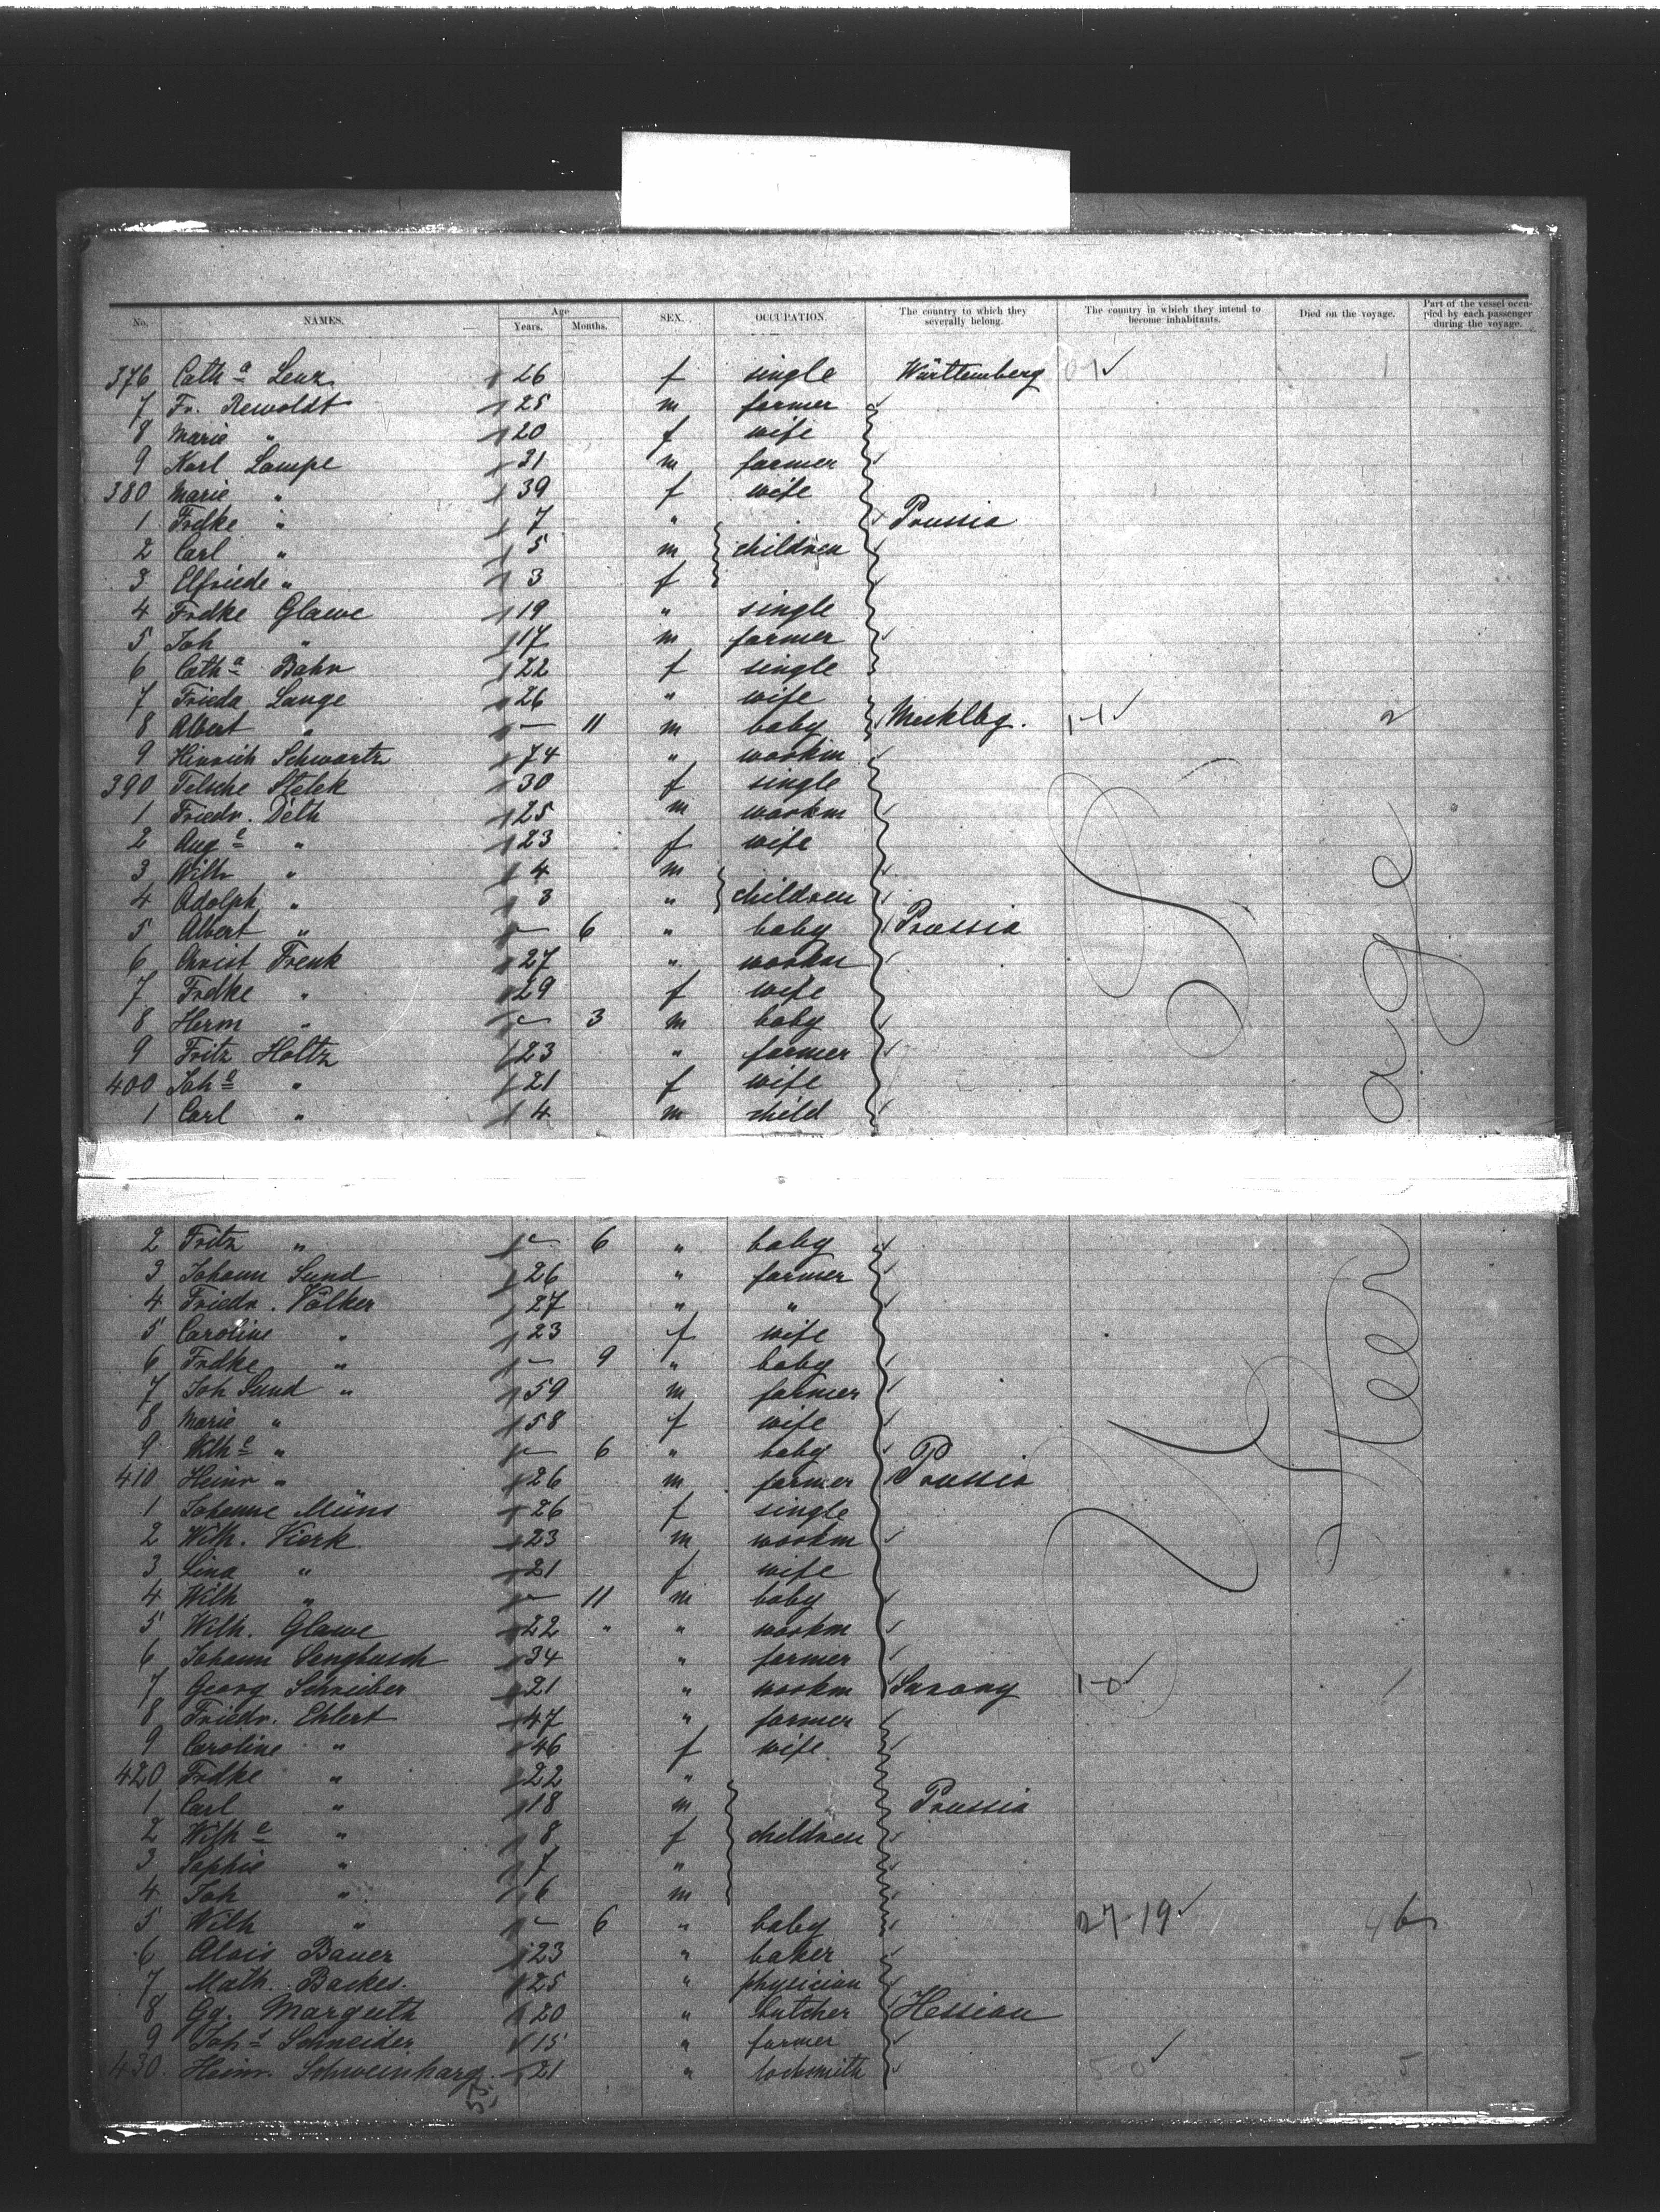 No. NAMES. Age Years. Months. SEX. OCCUPATION. The country to which they severally belong. The country in which they intend to become inhabitants. Died on the voyage. Part of the vessel occupied by each passenger during the voyage.
376 Cath a Lenz 26 f single Württemberg 0-1 ✓ 1
7 Fr. Rewoldt 25 m farmer
8 Marie " 20 f wife
9 Karl Lampe 31 m farmer
380 Marie " 39 f wife
1 Fridke " 7 " Prussia
2 Carl " 5 m children
3 Elfriede " 3 f
4 Fridke Glawe 19 " single
5 Joh " 17 m farmer
6 Cath a Bahr 22 f single
7 Frieda Lange 26 " wife
8 Albert " – 11 m baby Mecklbg. 1-1 ✓ 2
9 Hinrich Schwartz 74 " workm
390 Telsche 30 f single
1 Friedr. Deth 25 m workm
2 Aug e " 23 f wife
3 Wilh " 4 m
4 Adolph " 3 " children
5 Albert " – 6 " baby Prussia
6 Christ Frenk 27 " workm
7 Fridke " 29 f wife
8 Herm " – 3 m baby
9 Fritz Holtz 23 " farmer
400 Joh e " 21 f wife
1 Carl " 4 m child
2 Fritz " – 6 " baby
3 Johann Sund 26 " farmer
4 Friedr. Völker 27 " "
5 Caroline " 23 f wife
6 Fridke " – 9 " baby
7 Joh Sund " 59 m farmer
8 Marie " 58 f wife
9 Wilh e " – 6 " baby
410 Heinr " 26 m farmer Prussia
1 Johanne Müns 26 f single
2 Wilh. Vierk 23 m workm
3 Lina " 21 f wife
4 Wilh " – 11 m baby
5 Wilh. Glawe 22 " " workm
6 Johann Sengbusch 34 " farmer
7 Georg Schreiber 21 " workm Saxony 1-0 ✓ 1
8 Friedr. Ehlert 47 " farmer
9 Caroline " 46 f wife
420 Fridke " 22 "
1 Carl " 18 m Prussia
2 Wilh e " 8 f children
3 Sophie " 7 "
4 Joh " 6 m
5 Wilh " – 6 " baby 27-19 ✓ 46
6 Alois Bauer 23 " baker
7 Math. Backes. 25 " physician
8 Gg. Marguth 20 " butcher Hessian
9 Joh s Schneider 15 " farmer
430 Heinr. Schweinharg 21 " locksmith 5-0 ✓ 5
55
Steerage